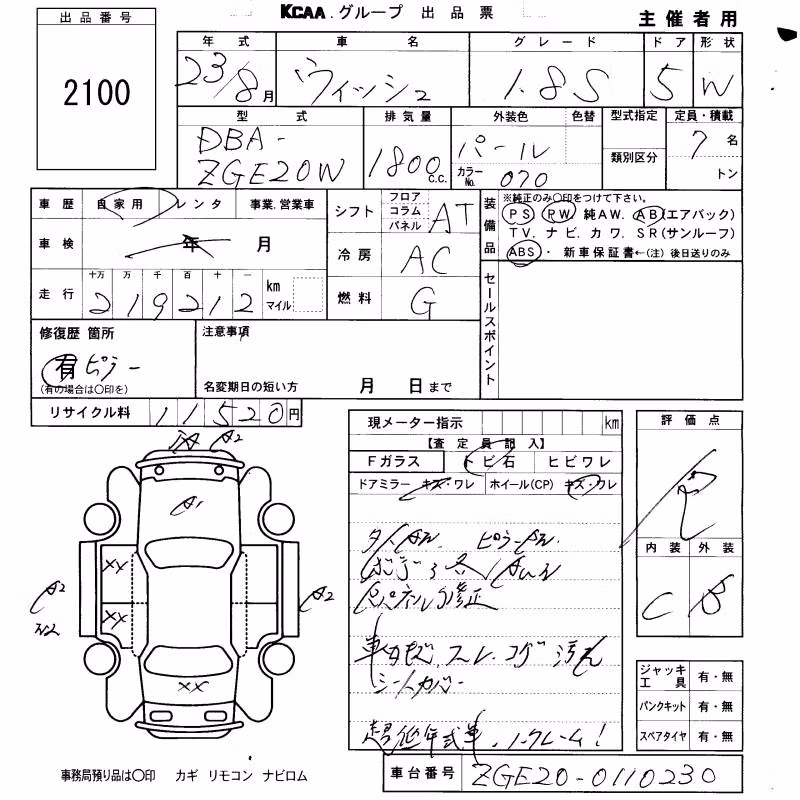 KCAA.グループ 出品票
主催者用
出品番号
2100
年式 車名 グレード ドア 形状
23/8月 ウィッシュ 1.8S 5 W
型式 排気量 外装色 色替 型式指定 定員・積載
DBA-
ZGE20W 1800c.c. パール 7名
カラーNo. 070 類別区分 トン
車歴 自家用 レンタ 事業.営業車
車検 年 月
十万 万 千 百 十 一
走行 219212 km マイル
シフト フロア コラム パネル AT
冷房 AC
燃料 G
装備品
※純正のみ○印をつけて下さい。
PS PW 純AW. AB(エアバック)
TV. ナビ. カワ. SR(サンルーフ)
ABS・ 新車保証書←(注)後日送りのみ
セールスポイント
修復歴 箇所
有 ピラー
(有の場合は○印を)
注意事項
名変期日の短い方 月 日まで
リサイクル料 11520円
現メーター指示 km
【査定員記入】
Fガラス トビ石 ヒビワレ
ドアミラー キズ・ワレ ホイール(CP) キズ・ワレ
修正
シートカバー
超低年式車.ノークレーム!
評価点
内装 外装
C B
A2
A1
XX
A2
XX
A2
XX
ジャッキ工具 有・無
パンクキット 有・無
スペアタイヤ 有・無
事務局預り品は○印 カギ リモコン ナビロム
車台番号 ZGE20-0110230